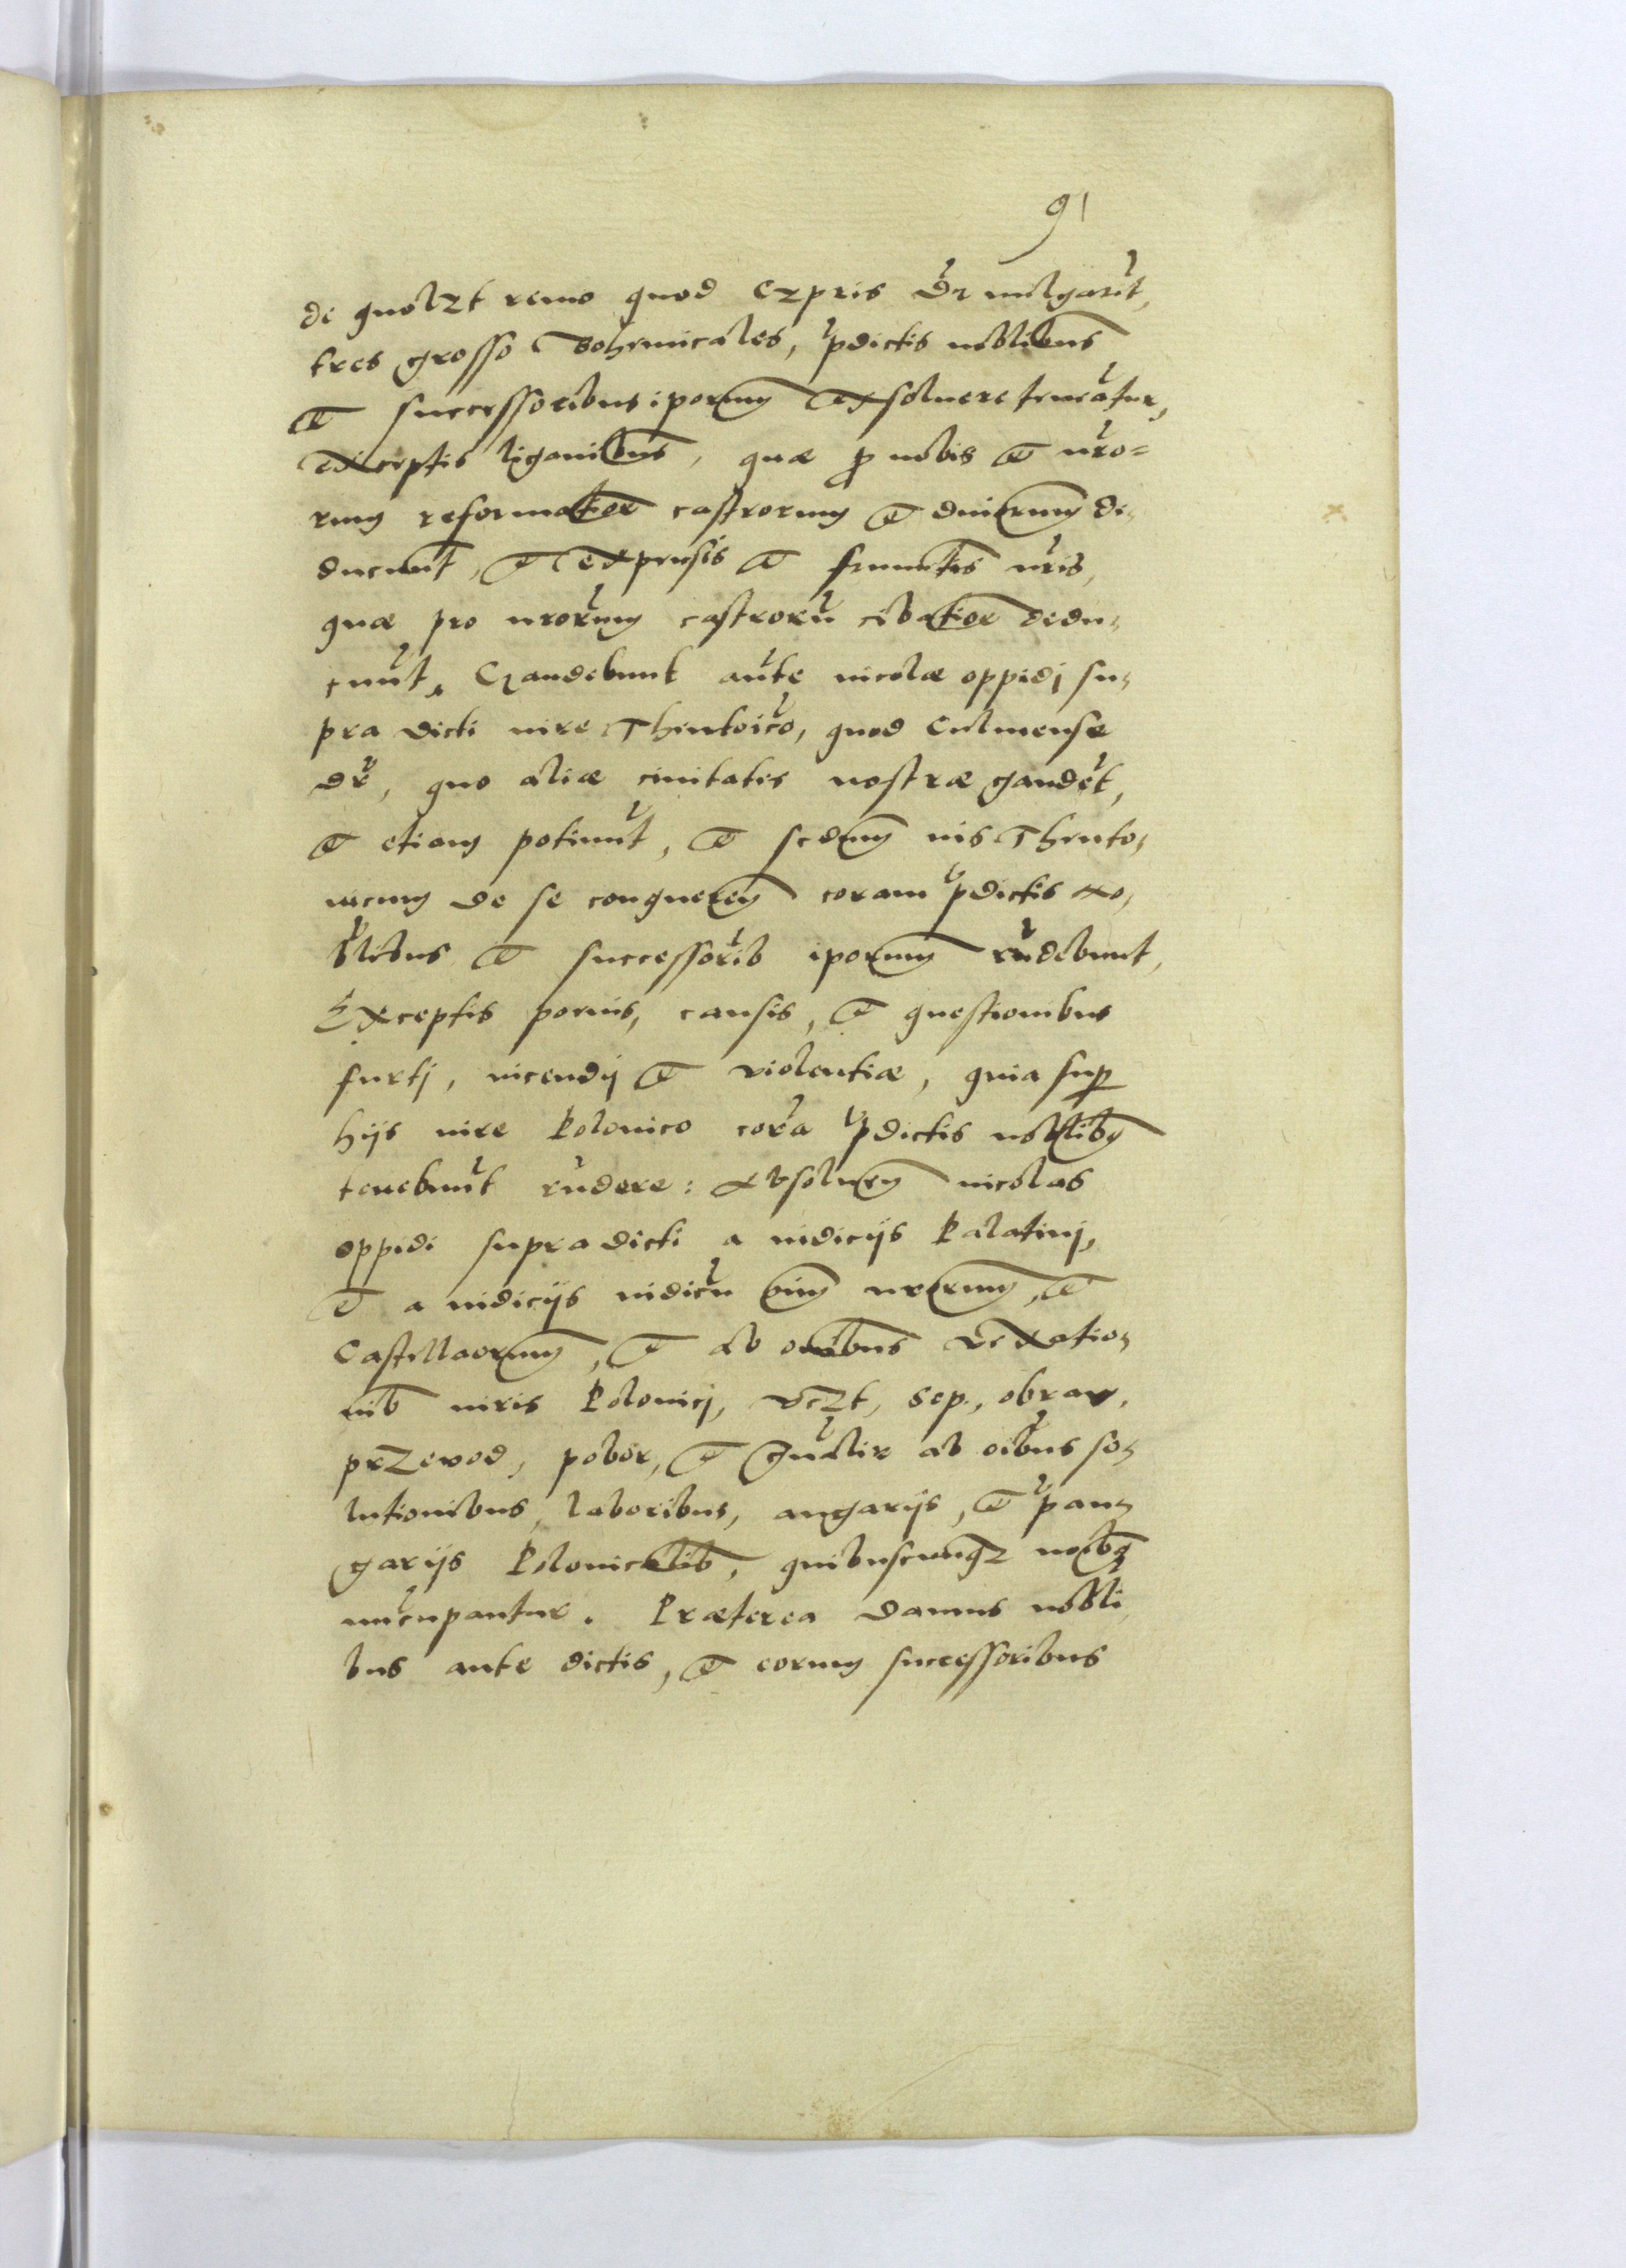 91
de quolzt remo quod Czpris dr uulgarit,
tres grosso Bohemicales, pdictis noblibus
et successoribus iporum exsoluere teneatur,
Exceptis liganibus, quæ p nobis et nro=
rum reformatioe castrorum et duiorum di,
ducunt, et expensis et frumentis nris,
quæ pro nrorum castroru cibatioe dedu,
cunt. Gaudebunt aute incolæ oppidi su,
pra dicti iure Theutoico, quod Culmense
dr, quo aliæ ciuitates nostræ gaudet,
et etiam potiunt, et scdum ius Theuto,
nicum de se conqueren coram pdictis no,
blibus et successorib iporum rndebunt,
Exceptis poenis, causis, et questionibus
furti, incendij et violentiæ, quia sup
hijs iure Polonico cora pdictis noblibus
tenebunt rndere: Absoluen incolas
oppidi supradicti a iudicijs Palatini,
et a iudicijs iudicu oium nrorum, et
Castellaorum, et ab omnibus vexatio,
nib iuris Polonici, vczt, sep, obraz,
przewod, pobor, et gnalir ab oibus so,
lutionibus, laboribus, angarijs, et pan,
garijs Polonicalib, quibuscunqz noibus
nucupantur. Præterea damus nobli
bus ante dictis, et eorum successoribus